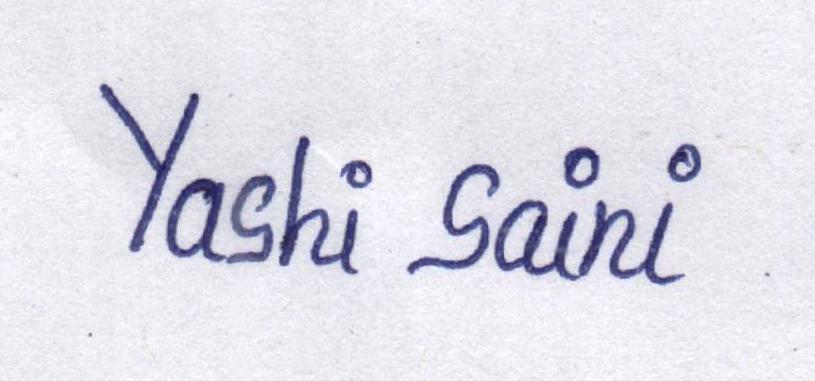 Yashi Saini